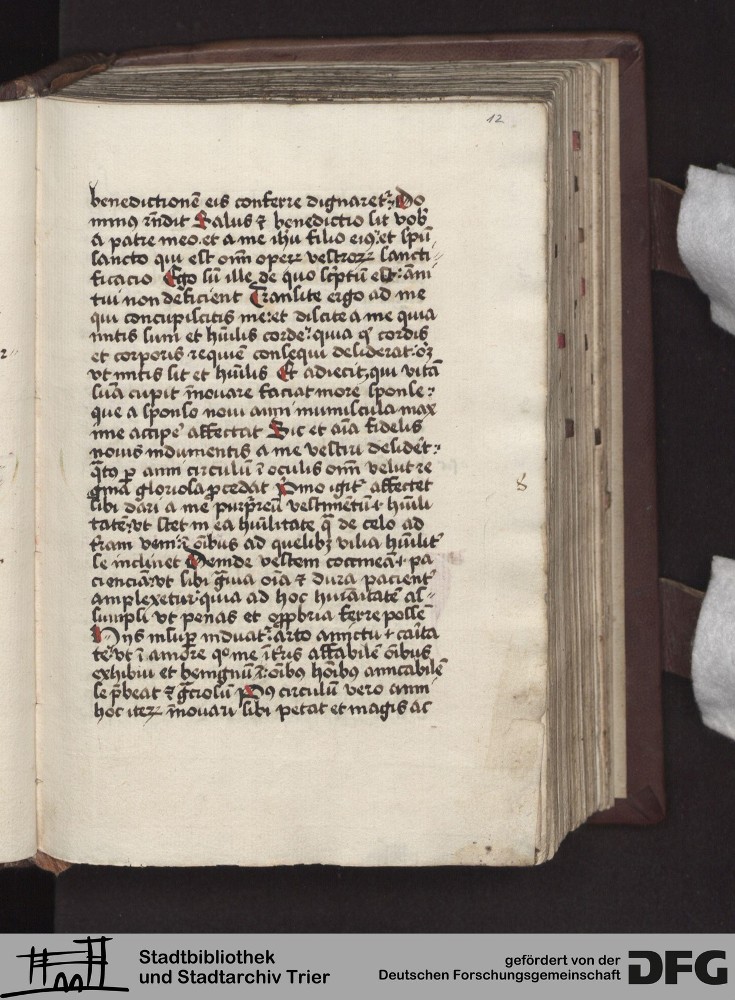 12
benedictionē eis conferre dignaretᷣ Do
minus rn̄dit Salus ⁊ benedictio sit vob̄
a patre meo et a me ih̄u filio eiꝰ et spū
sancto qui est om̄ operꝝ vestrorꝝ sancti〃
ficacio Ego sū ille de quo sc̄ptū est: ām
tui non deficient Transite ergo ad me
qui concupiscitis me: et discite a me quia
mitis sum et hūilis corde: quia qͥ cordis
et corporis requiē consequi desiderat: oꝫ
vt mitis sit et hūilis Et adiecit, qui vitā
suā cupit īnouare faciat more sponse:
que a sponso noui anni munuscula max
ime accipe affectat Sic et aīa fidelis
nouis indumentis a me vestiri desidet:
qͣto ꝑ anni circulū ī oculis om̄ velut re
gīna gloriosa ꝓcedat Pͥmo igitᷣ affectet
sibi dari a me purpureū vestimentū ⁊ hūili
tatē: vt stet in ea hūilitate qͣ de celo ad
tram veni: ī oībus ad quelibꝫ vilia hūilitᷣ
se inclinet Deinde vestem coccineā ⁊ pa
cienciā: vt sibi gͣuia oīa ⁊ dura pacientᷣ
amplexetur: quia ad hoc hūanitatē as〃
sumpsi vt penas et opp̄bria ferre possē
Hijs insuꝑ induatᷣ: arto amictu ⁊ caīta
te: vt ī amore qͦ me ī tris affabilē oībus
exhibui et benignū ī: oībꝰ hoībꝰ amicabilē
se p̄beat ⁊ gͣciosū Pꝰ circulū vero anni
hoc iteꝝ īnouari sibi petat et magis ac
8
Stadtbibliothek
und Stadtarchiv Trier
gefördert von der
Deutschen Forschungsgemeinschaft
DFG